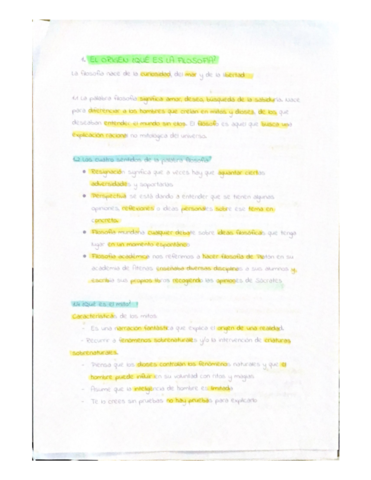 1. EL SABER: ¿QUÉ ES LA FILOSOFÍA?
La filosofía nace de la curiosidad, del mar y de la libertad.
A) La palabra filosofía significa amor, deseo, búsqueda de la sabiduría, nace
para diferenciar a los hombres que creían en mitos y dioses, de los que
deseaban entender el mundo sin ellos. El filósofo es aquel que busca una
explicación racional no mitológica del universo.
Los cuatro sentidos de la palabra filosofía
Resignación: significa que a veces hay que aguantar ciertas
adversidades y soportarlas
Perspectiva: se está dando a entender que se tienen algunas
opiniones, reflexiones o ideas personales sobre ese tema en
concreto.
Filosofía mundana: cualquier debate sobre ideas filosóficas que tenga
lugar en un momento espontáneo
Filosofía académica: nos referimos a hacer filosofía de Platón en su
academia de Atenas, diversas disciplinas a sus alumnos y
escribía sus propias obras recogiendo las de Sócrates.
¿Qué es el mito?
Características de los mitos
- Es una narración fantástica que explica el origen de una realidad.
- Recurrir a fenómenos sobrenaturales y/o la intervención de criaturas
sobrenaturales.
- Piensa que los dioses controlan los fenómenos naturales y que el
hombre puede influir en su voluntad con ritos y magias
- Asume que la inteligencia de hombre es limitada
- Te lo crees sin pruebas, no hay pruebas para explicarlo